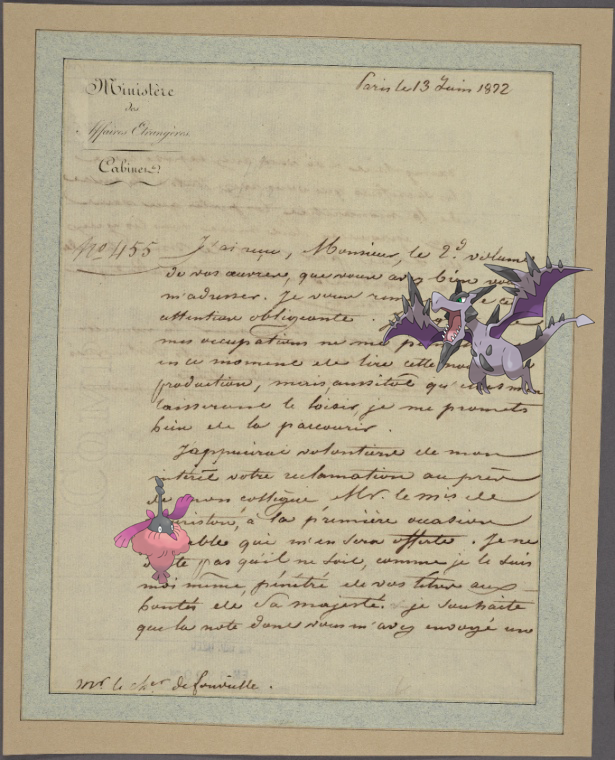 Ministère
des
Affaires Etrangères
Cabinet
Paris le 13 Juin 1822
No 455
J'ai reçu, Monsieur, le 2d volume
de vos œuvres, que vous avez bien
m'adresser. Je vous
attention obligeante.
mes occupations ne me
en ce moment de lire cette
production, mais, aussitôt qu'elles
laisseront le loisir, je me promets
bien de la parcourir.
J'appuierai volontiers de mon
intérêt votre reclamation auprès
de mon collègue Mr. le mis de
à la première occasion
que m'en sera offerte. Je ne
pas qu'il ne soit, comme je le suis
moi même, pénétré de vos titres aux
bontés de Sa majesté. Je souhaite
que la note dont vous m'avez envoyé un
mr le cher de